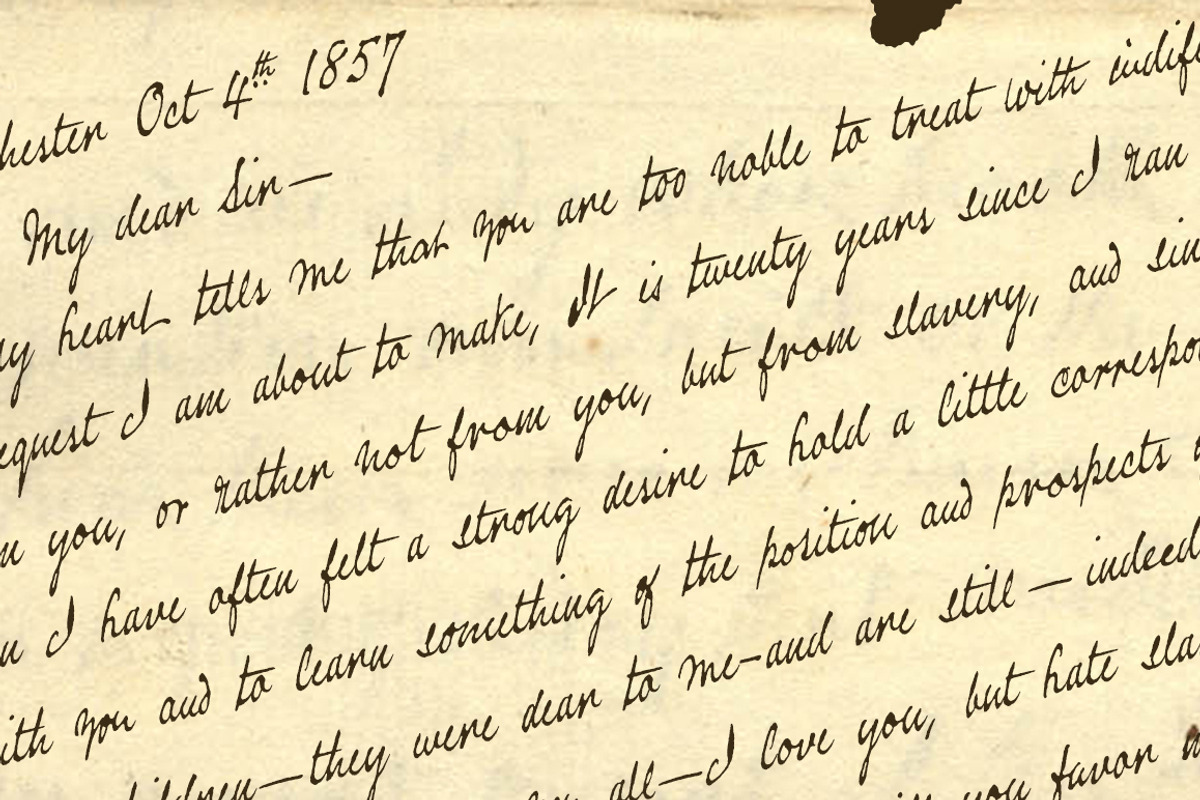 hester Oct 4th 1857
My dear Sir—
ay heart tells me that you are too noble to treat with indif
equest I am about to make, It is twenty years since I ran
you, or rather not from you, but from slavery, and sin
I have often felt a strong desire to hold a little correspo
ith you and to learn something of the position and prospects
ildren—they were dear to me—and are still—indeed
all—I love you, but hate sla
you favor